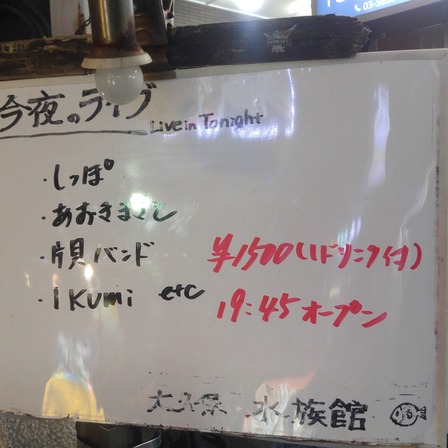 今夜のライブ
Live in Tonight
・しっぽ
・あおきまさし
・片貝バンド
¥1500(1ドリンク付)
・IKumi etc
19:45オープン
大久保 水族館